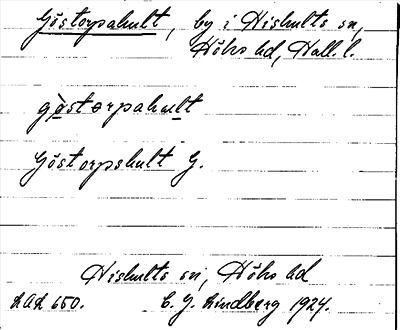 Göstorpahult, by i Hishults sn,
Höks hd, Hall. l.
göstorpahult
Göstorpshult G.
Hishults sn, Höks hd
C. G. Lindberg 1924.